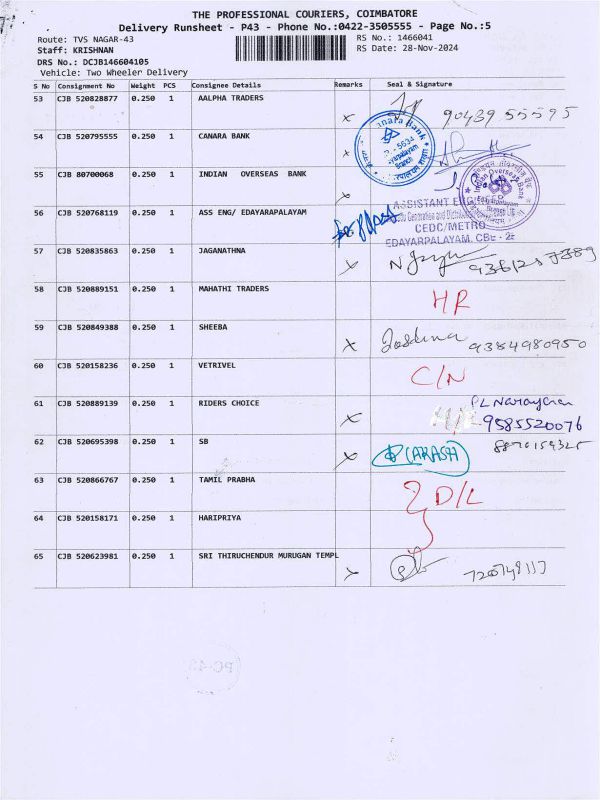 THE PROFESSIONAL COURIERS, COIMBATORE
Delivery Runsheet - P43 - Phone No.:0422-3505555 - Page No.:5
Route: TVS NAGAR-43 RS No.: 1466041
Staff: KRISHNAN RS Date: 28-Nov-2024
DRS No.: DCJB146604105
Vehicle: Two Wheeler Delivery
S No Consignment No Weight PCS Consignee Details Remarks Seal & Signature
53 CJB 520828877 0.250 1 AALPHA TRADERS x 90439 55595
54 CJB 520795555 0.250 1 CANARA BANK x
55 CJB 80700068 0.250 1 INDIAN OVERSEAS BANK x
56 CJB 520768119 0.250 1 ASS ENG/ EDAYARAPALAYAM
CEDC/METRO
EDAYARPALAYAM, CBE - 25
57 CJB 520835863 0.250 1 JAGANATHNA x
58 CJB 520889151 0.250 1 MAHATHI TRADERS HR
59 CJB 520849388 0.250 1 SHEEBA x 9384980950
60 CJB 520158236 0.250 1 VETRIVEL C/N
61 CJB 520889139 0.250 1 RIDERS CHOICE x PL Narayanan
9585520076
62 CJB 520695398 0.250 1 SB x (AKASH)
63 CJB 520866767 0.250 1 TAMIL PRABHA D/L
64 CJB 520158171 0.250 1 HARIPRIYA
65 CJB 520623981 0.250 1 SRI THIRUCHENDUR MURUGAN TEMPL x